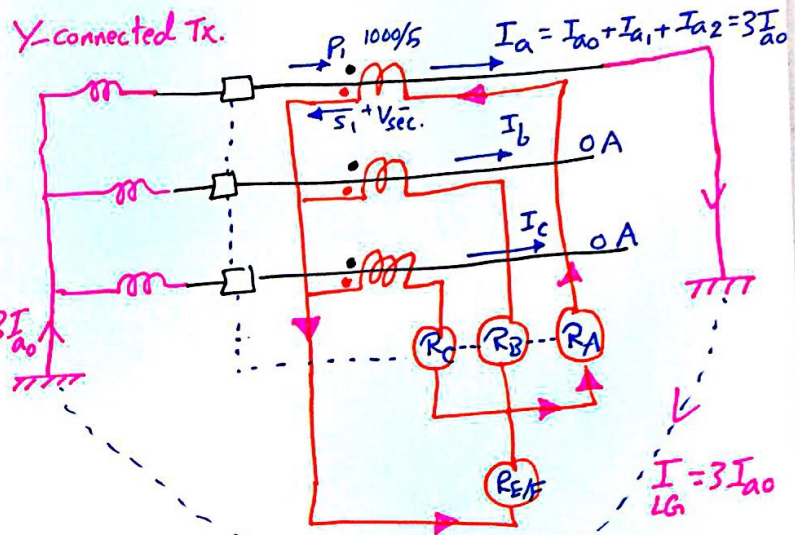 Y-connected Tx.
P1 1000/5
Ia = Ia0 + Ia1 + Ia2 = 3Ia0
S1 + Vsec. -
Ib
0 A
Ic
0 A
3Ia0
RC
RB
RA
RE/F
I LG = 3Ia0